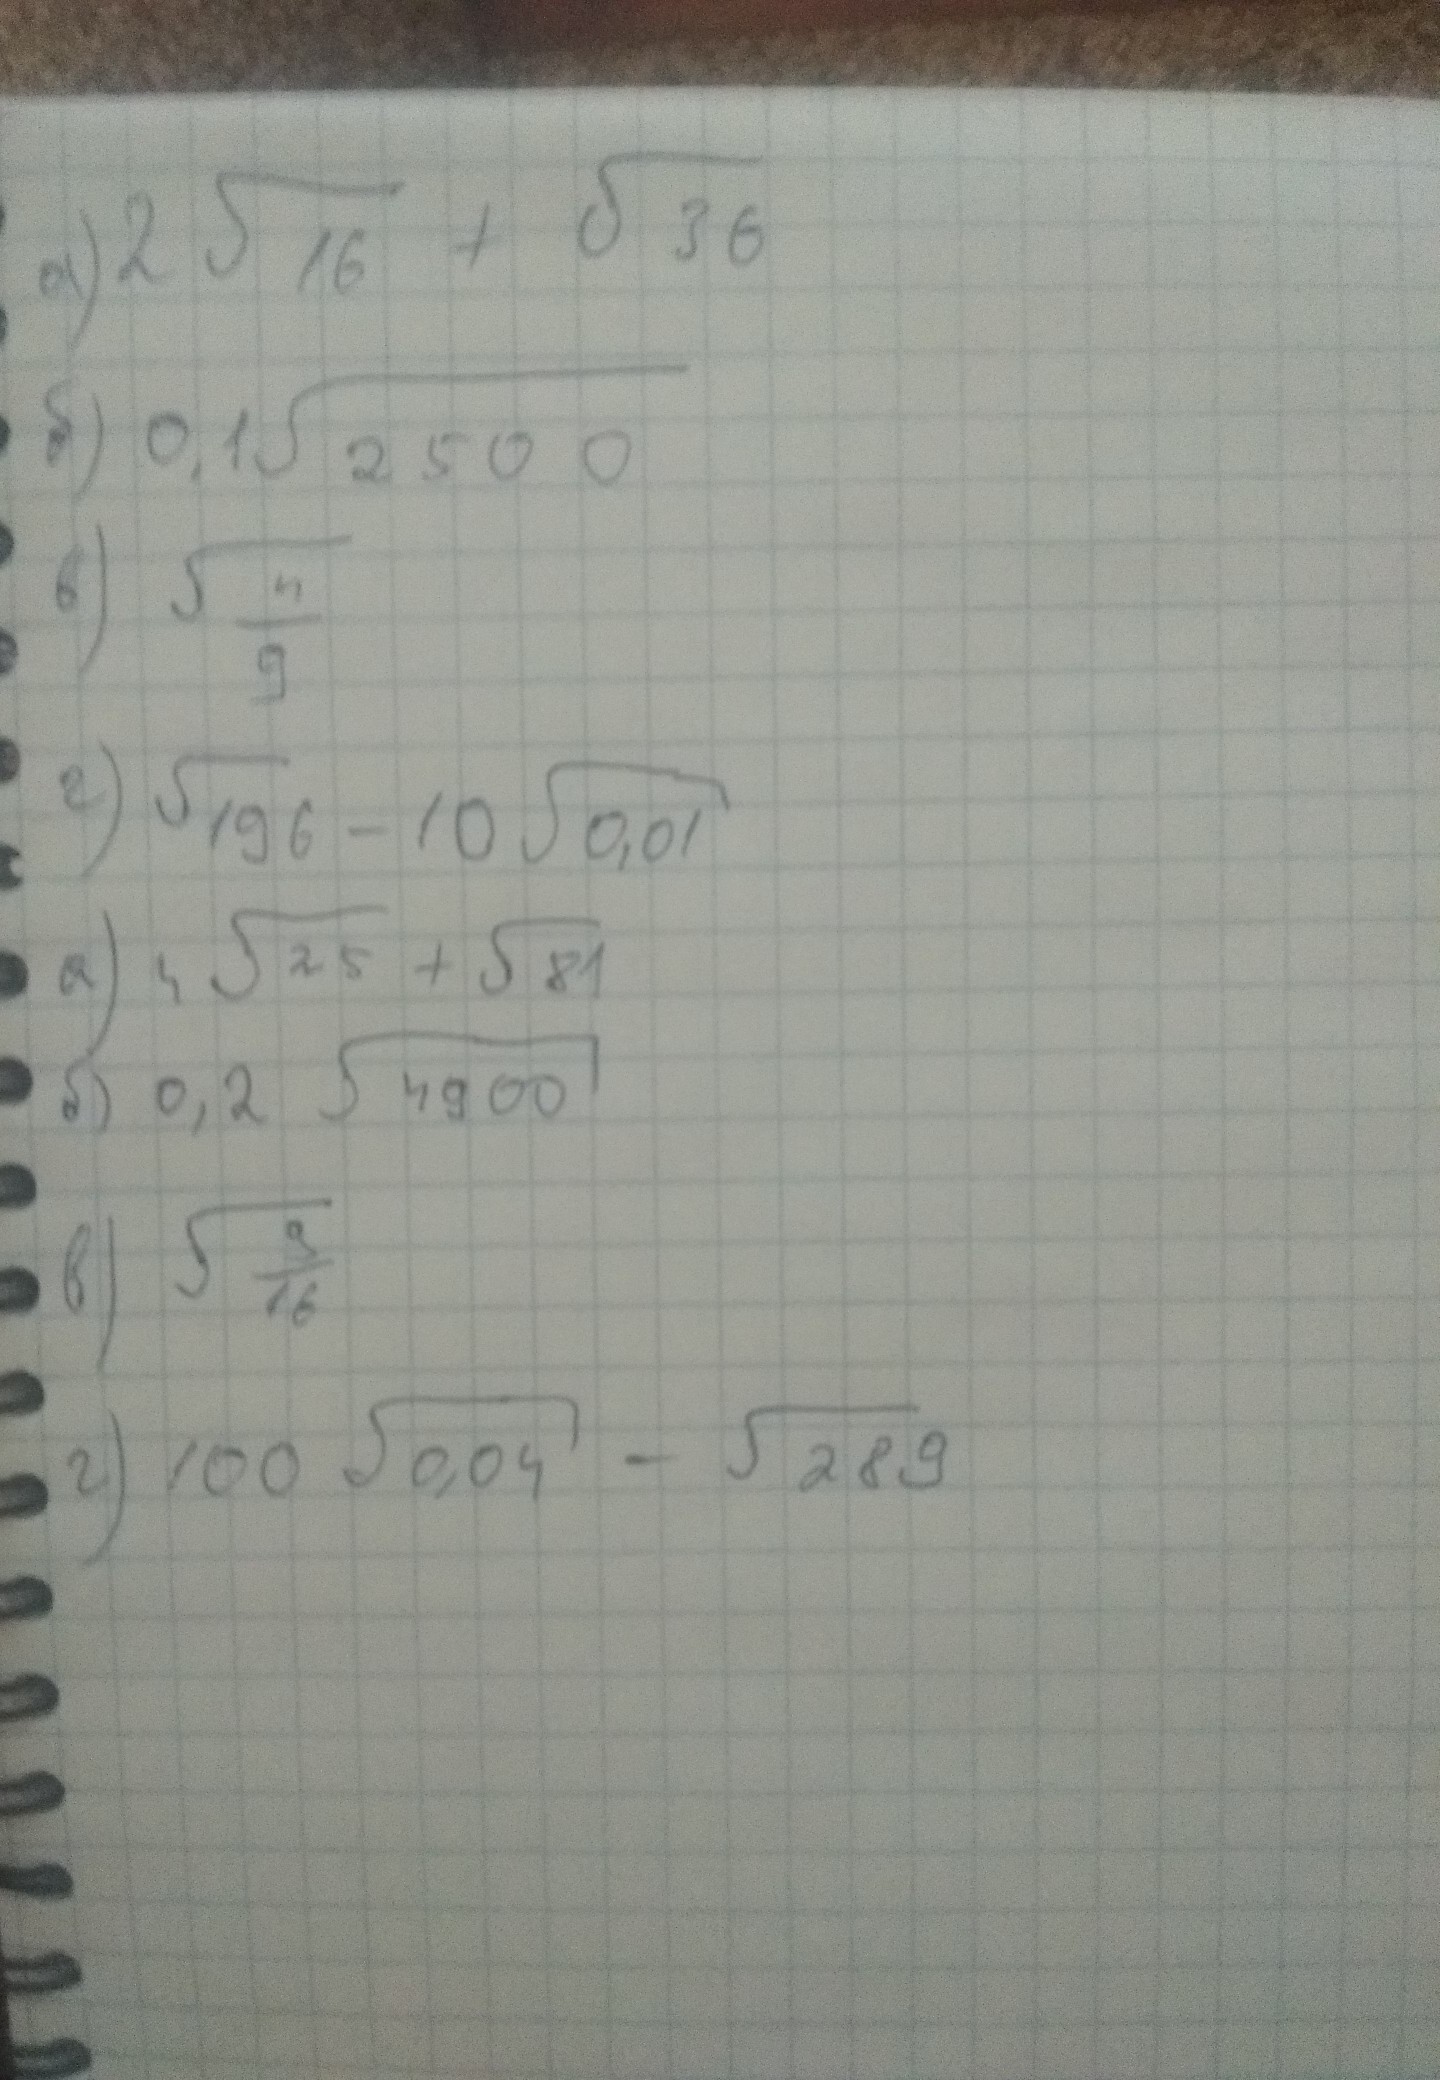 а) 2√16 + √36
б) 0,1√2500
в) √4/9
г) √196 - 10√0,01
а) 4√25 + √81
б) 0,2 √4900
в) √9/16
г) 100 √0,04 - √289